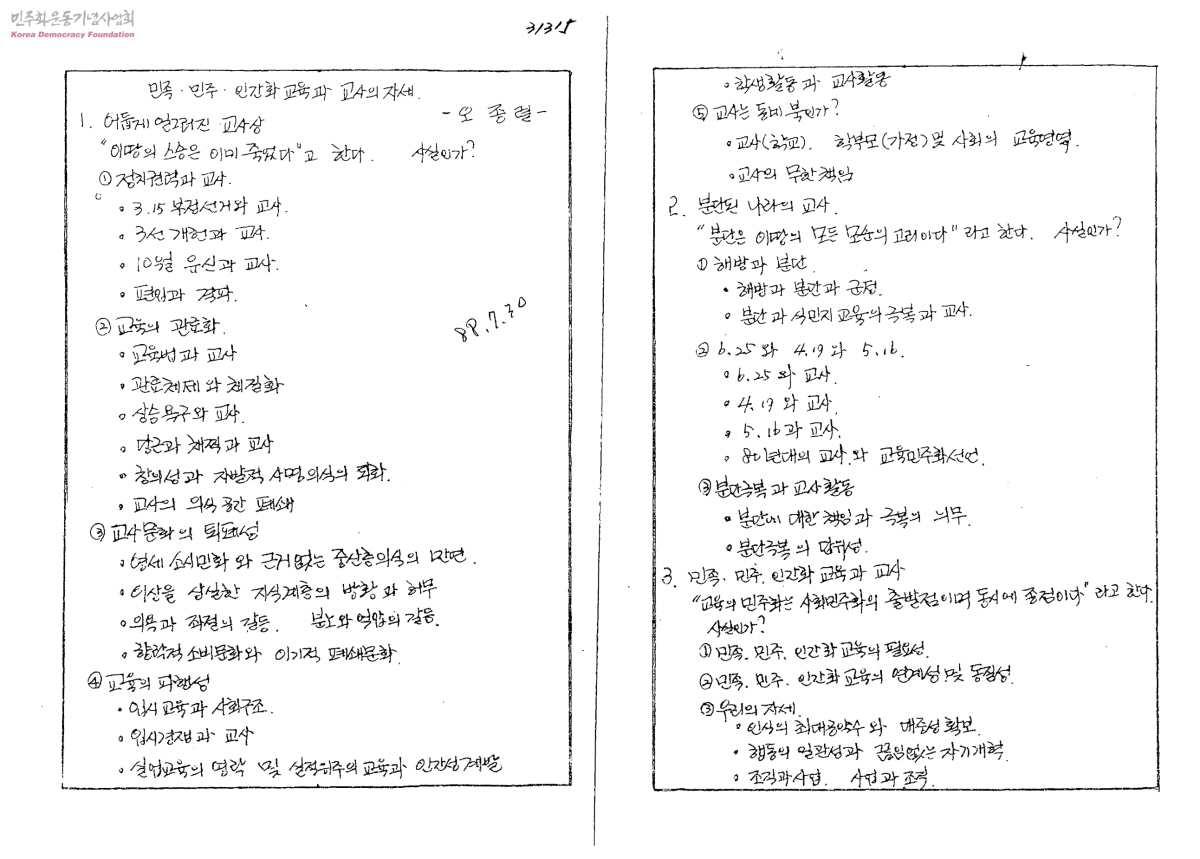 민주화운동기념사업회
Korea Democracy Foundation
31315
민족·민주·인간화 교육과 교사의 자세.
- 오 종 렬 -
1. 어둡게 일그러진 교사상
"이땅의 스승은 이미 죽었다"고 한다. 사실인가?
① 정치권력과 교사.
• 3.15 부정선거와 교사.
• 3선 개헌과 교사.
• 10월 유신과 교사.
• 편입과 격파.
88.7.30
② 교육의 관료화.
• 교육법과 교사
• 관료체제와 체질화
• 상승욕구와 교사.
• 당근과 채찍과 교사
• 창의성과 자발적 사명의식의 퇴화.
• 교사의 의식공간 폐쇄
③ 교사문화의 퇴폐성
• 영세 소시민화와 근거없는 중산층의식의 만연.
• 이상을 상실한 지식계층의 방황과 허무
• 의욕과 좌절의 갈등. 분노와 억압의 갈등.
• 향락적 소비문화와 이기적 폐쇄문화.
④ 교육의 파행성
• 입시교육과 사회구조.
• 입시경쟁과 교사
• 실업교육의 몰락 및 실적위주의 교육과 인간성계발
• 학생활동과 교사활동
⑤ 교사는 동네 북인가?
• 교사(학교). 학부모(가정) 및 사회의 교육영역.
• 교사의 무한책임
2. 분단된 나라의 교사.
"분단은 이땅의 모든 모순의 고리이다"라고 한다. 사실인가?
① 해방과 분단.
• 해방과 분단과 군정.
• 분단과 식민지교육의 극복과 교사.
② 6.25와 4.19와 5.16.
• 6.25와 교사.
• 4.19와 교사.
• 5.16과 교사.
• 80년대의 교사와 교육민주화선언.
③ 분단극복과 교사활동
• 분단에 대한 책임과 극복의 의무.
• 분단극복의 당위성.
3. 민족·민주·인간화 교육과 교사
"교육의 민주화는 사회민주화의 출발점이며 동시에 종점이다"라고 한다.
사실인가?
① 민족. 민주. 인간화 교육의 필요성.
② 민족. 민주. 인간화 교육의 연계성 및 동질성.
③ 우리의 자세.
• 인식의 최대공약수와 대중성 확보.
• 행동의 일관성과 끊임없는 자기개혁.
• 조직과 사업. 사업과 조직.